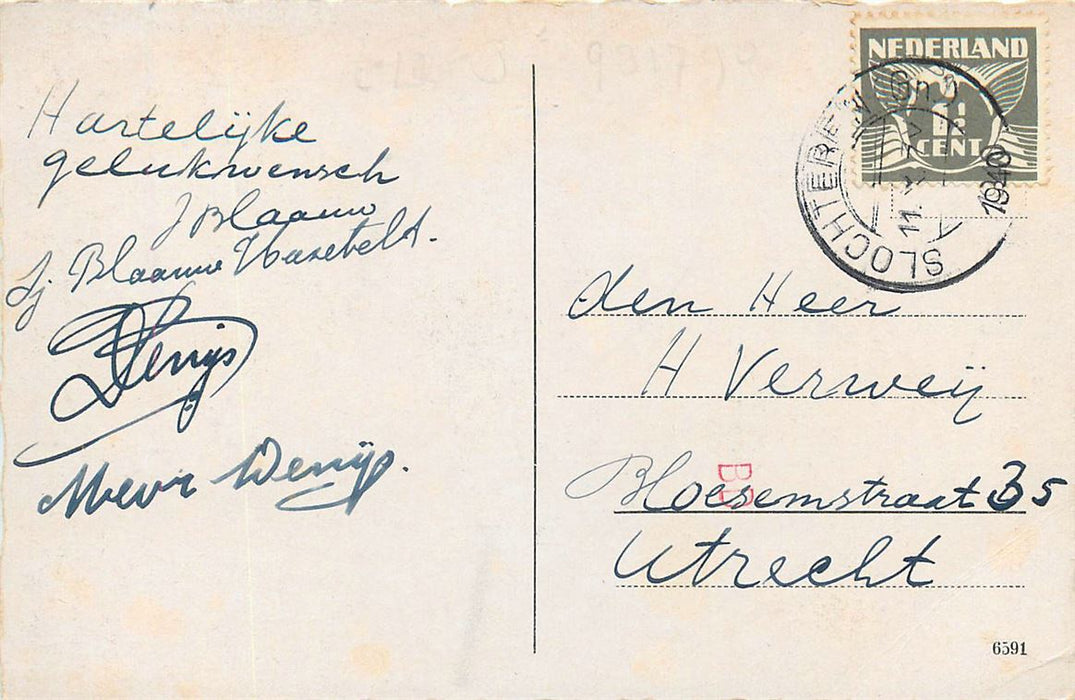 Hartelijke
gelukwensch
J Blaauw
Sj. Blaauw Hazebelt.
Denijs
Mevr Denijs.
NEDERLAND
1½
CENT
SLOCHTEREN (Gn)
1940
den Heer
H Verweij
BD
Bloesemstraat 35
Utrecht
6591